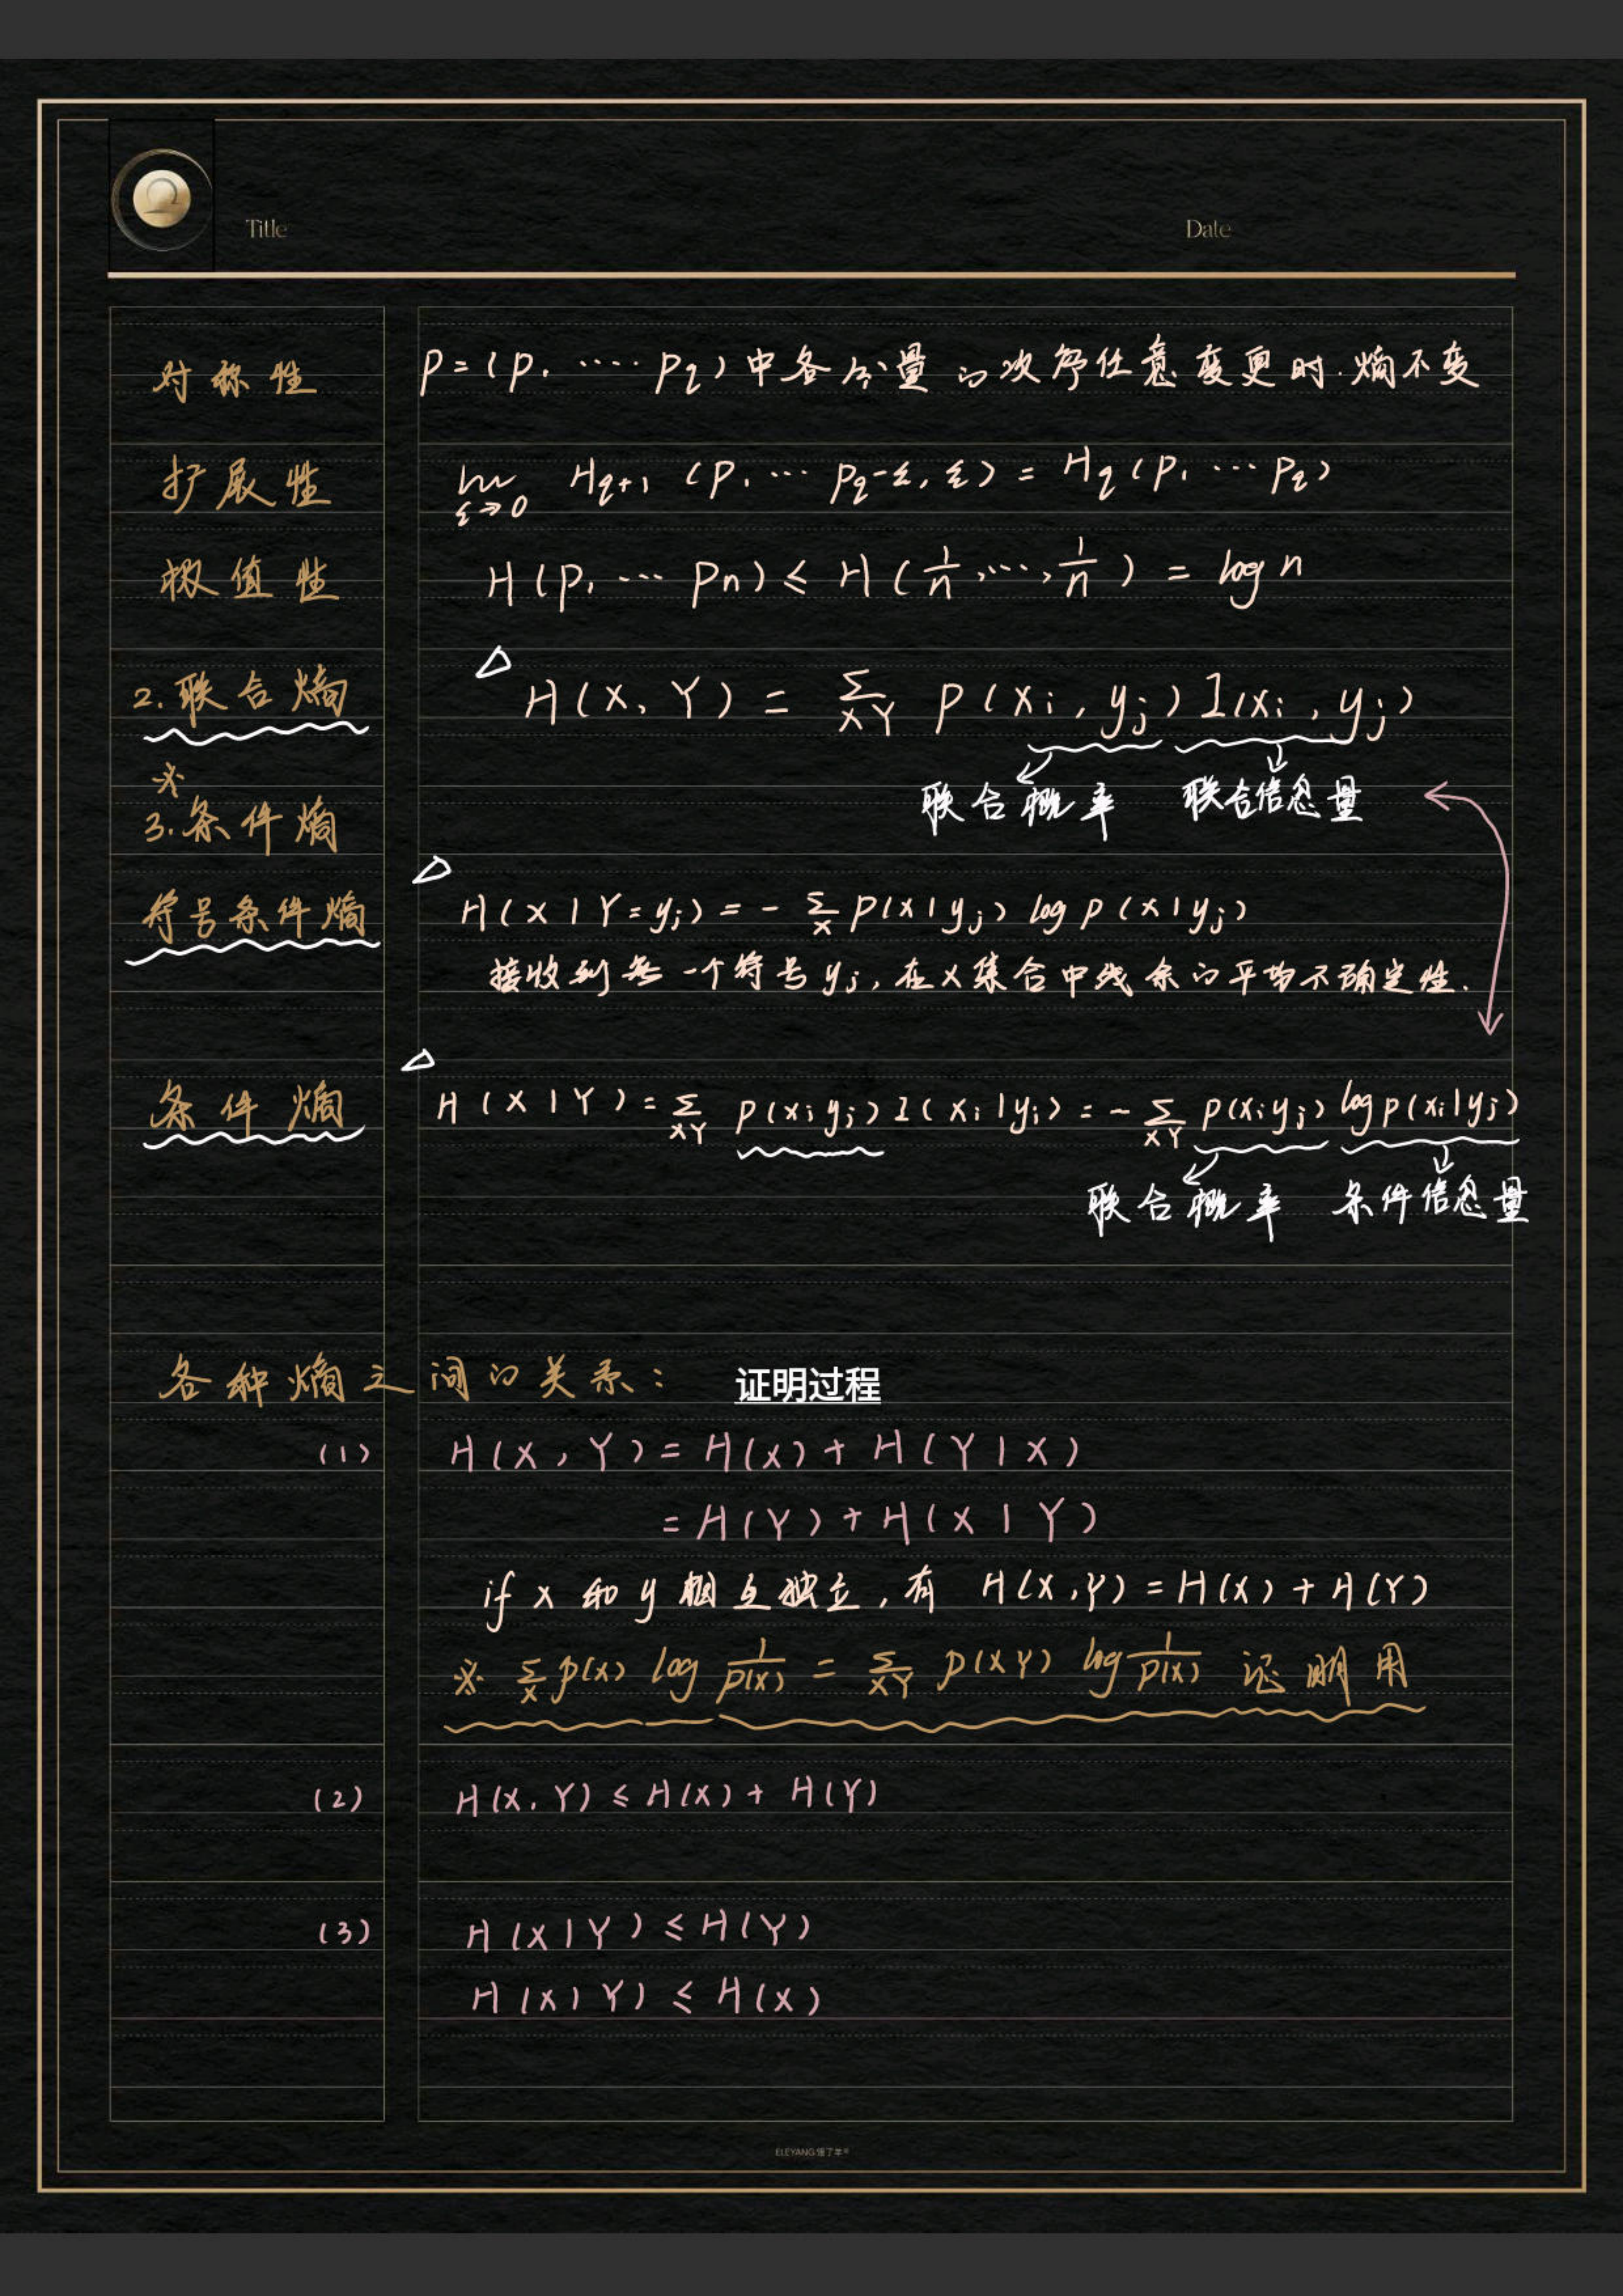 Title Date
对称性 P=(P₁ ···· Pq)中各分量的次序任意变更时.熵不变
扩展性 lim ε→0 Hq+1 (P₁ ··· Pq-ε, ε) = Hq (P₁ ··· Pq)
极值性 H(P₁ ··· Pn) ≤ H(1/n, ···, 1/n) = log n
2.联合熵 △ H(X, Y) = Σ XY P(xi, yj) I(xi, yj)
联合概率 联合信息量
※
3.条件熵
符号条件熵 △ H(X|Y=yj) = - Σ X P(x|yj) log P(x|yj)
接收到每一个符号yj,在X集合中残余的平均不确定性.
条件熵 △ H(X|Y) = Σ XY P(xi yj) I(xi|yj) = - Σ XY P(xi yj) log P(xi|yj)
联合概率 条件信息量
各种熵之间的关系: 证明过程
(1) H(X, Y) = H(X) + H(Y|X)
= H(Y) + H(X|Y)
if x 和 y 相互独立,有 H(X,Y) = H(X) + H(Y)
※ Σ X P(x) log 1/P(x) = Σ XY P(XY) log 1/P(x) 证明用
(2) H(X, Y) ≤ H(X) + H(Y)
(3) H(X|Y) ≤ H(Y)
H(X|Y) ≤ H(X)
ELEYANG 饿了羊®